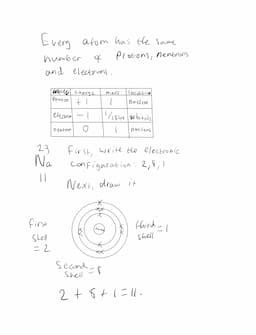 Every atom has the same
number of Protons, neutrons
and electrons.
Charge mass location
Proton +1 1 nucleus
electron -1 orbitals
neutron 0 1 nucleus
23
Na
11
First, write the electronic
configuration: 2, 8, 1
Next, draw it
first
shell
= 2
third = 1
shell
Second = 8
shell
2 + 8 + 1 = 11.